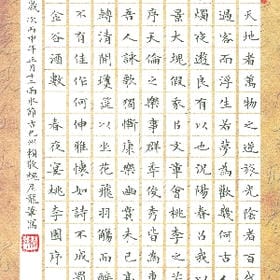 天地者萬物之逆旅光陰者百
過客而浮生若夢為歡幾何古
燭夜遊良有以也況陽春召我
景大塊假我以文章會桃李之
序天倫之樂事群季俊秀皆為
吾人詠歌獨慚康樂幽賞未已
轉清開瓊筵以坐花飛羽觴而醉
不有佳作何伸雅懷詩不成罰
金谷酒數 春夜宴桃李園序
歲次丙申年正月十三雨水節